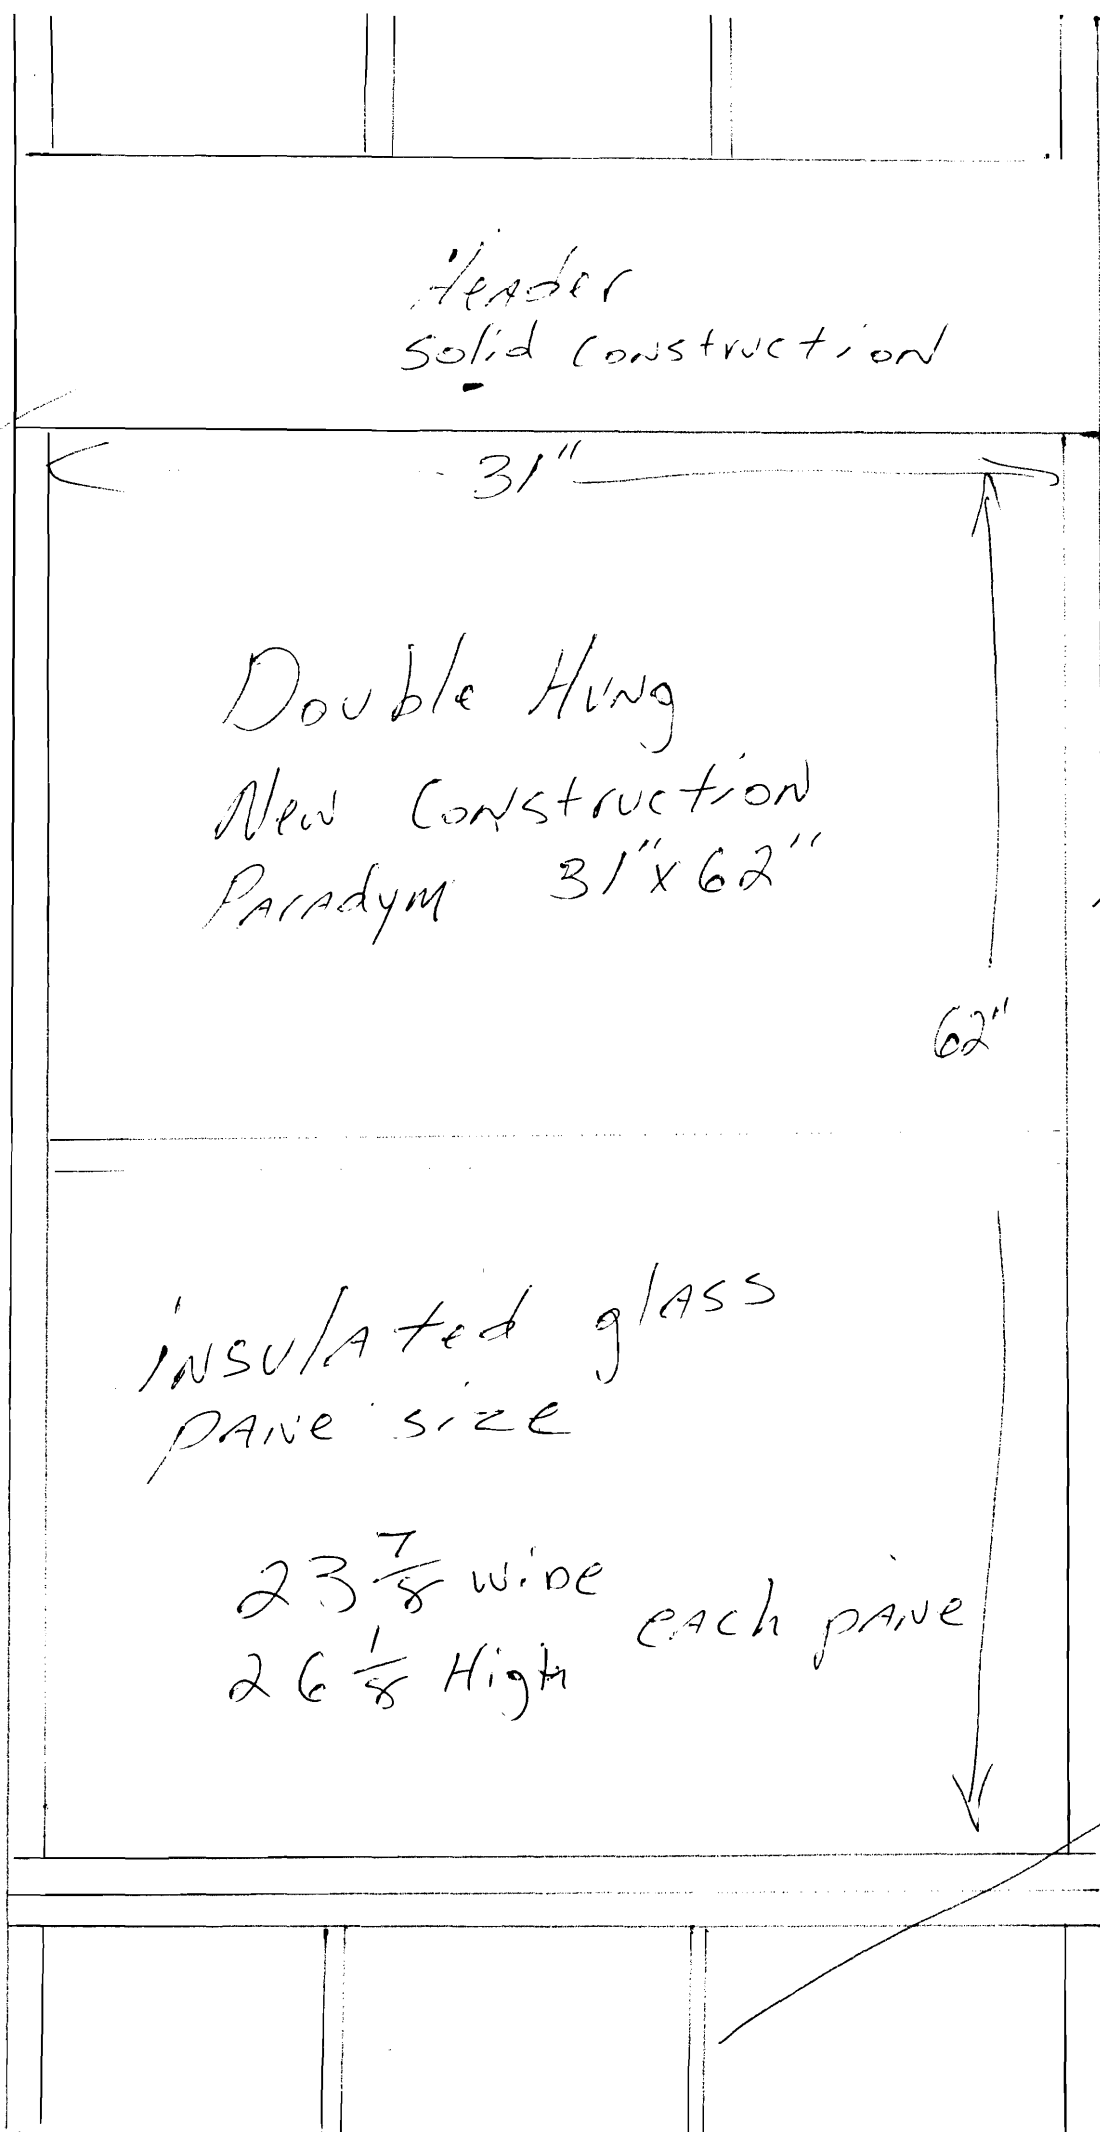 Header
solid construction
31"
Double Hung
New Construction
Paradym 31"x62"
62"
insulated glass
pane size
23 7/8 wide
each pane
26 1/8 High